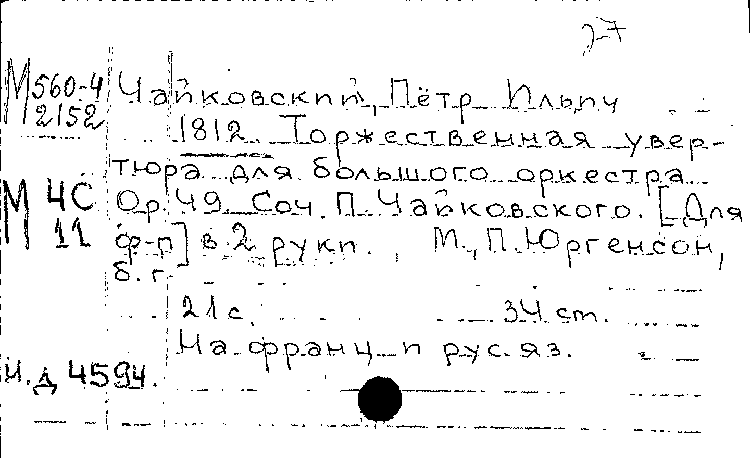 М560-4 Чайковский, Пётр Ильич
2152
1812. Торжественная увер-
тюра для большого оркестра
М 4С Op. 49. Соч. П. Чайковского. [Для
11 ф-п] в 2 руки. , М., П. Юргенсон,
б. г.
21 с. 34 ст.
На франц и рус. яз.
Н. д 4594.